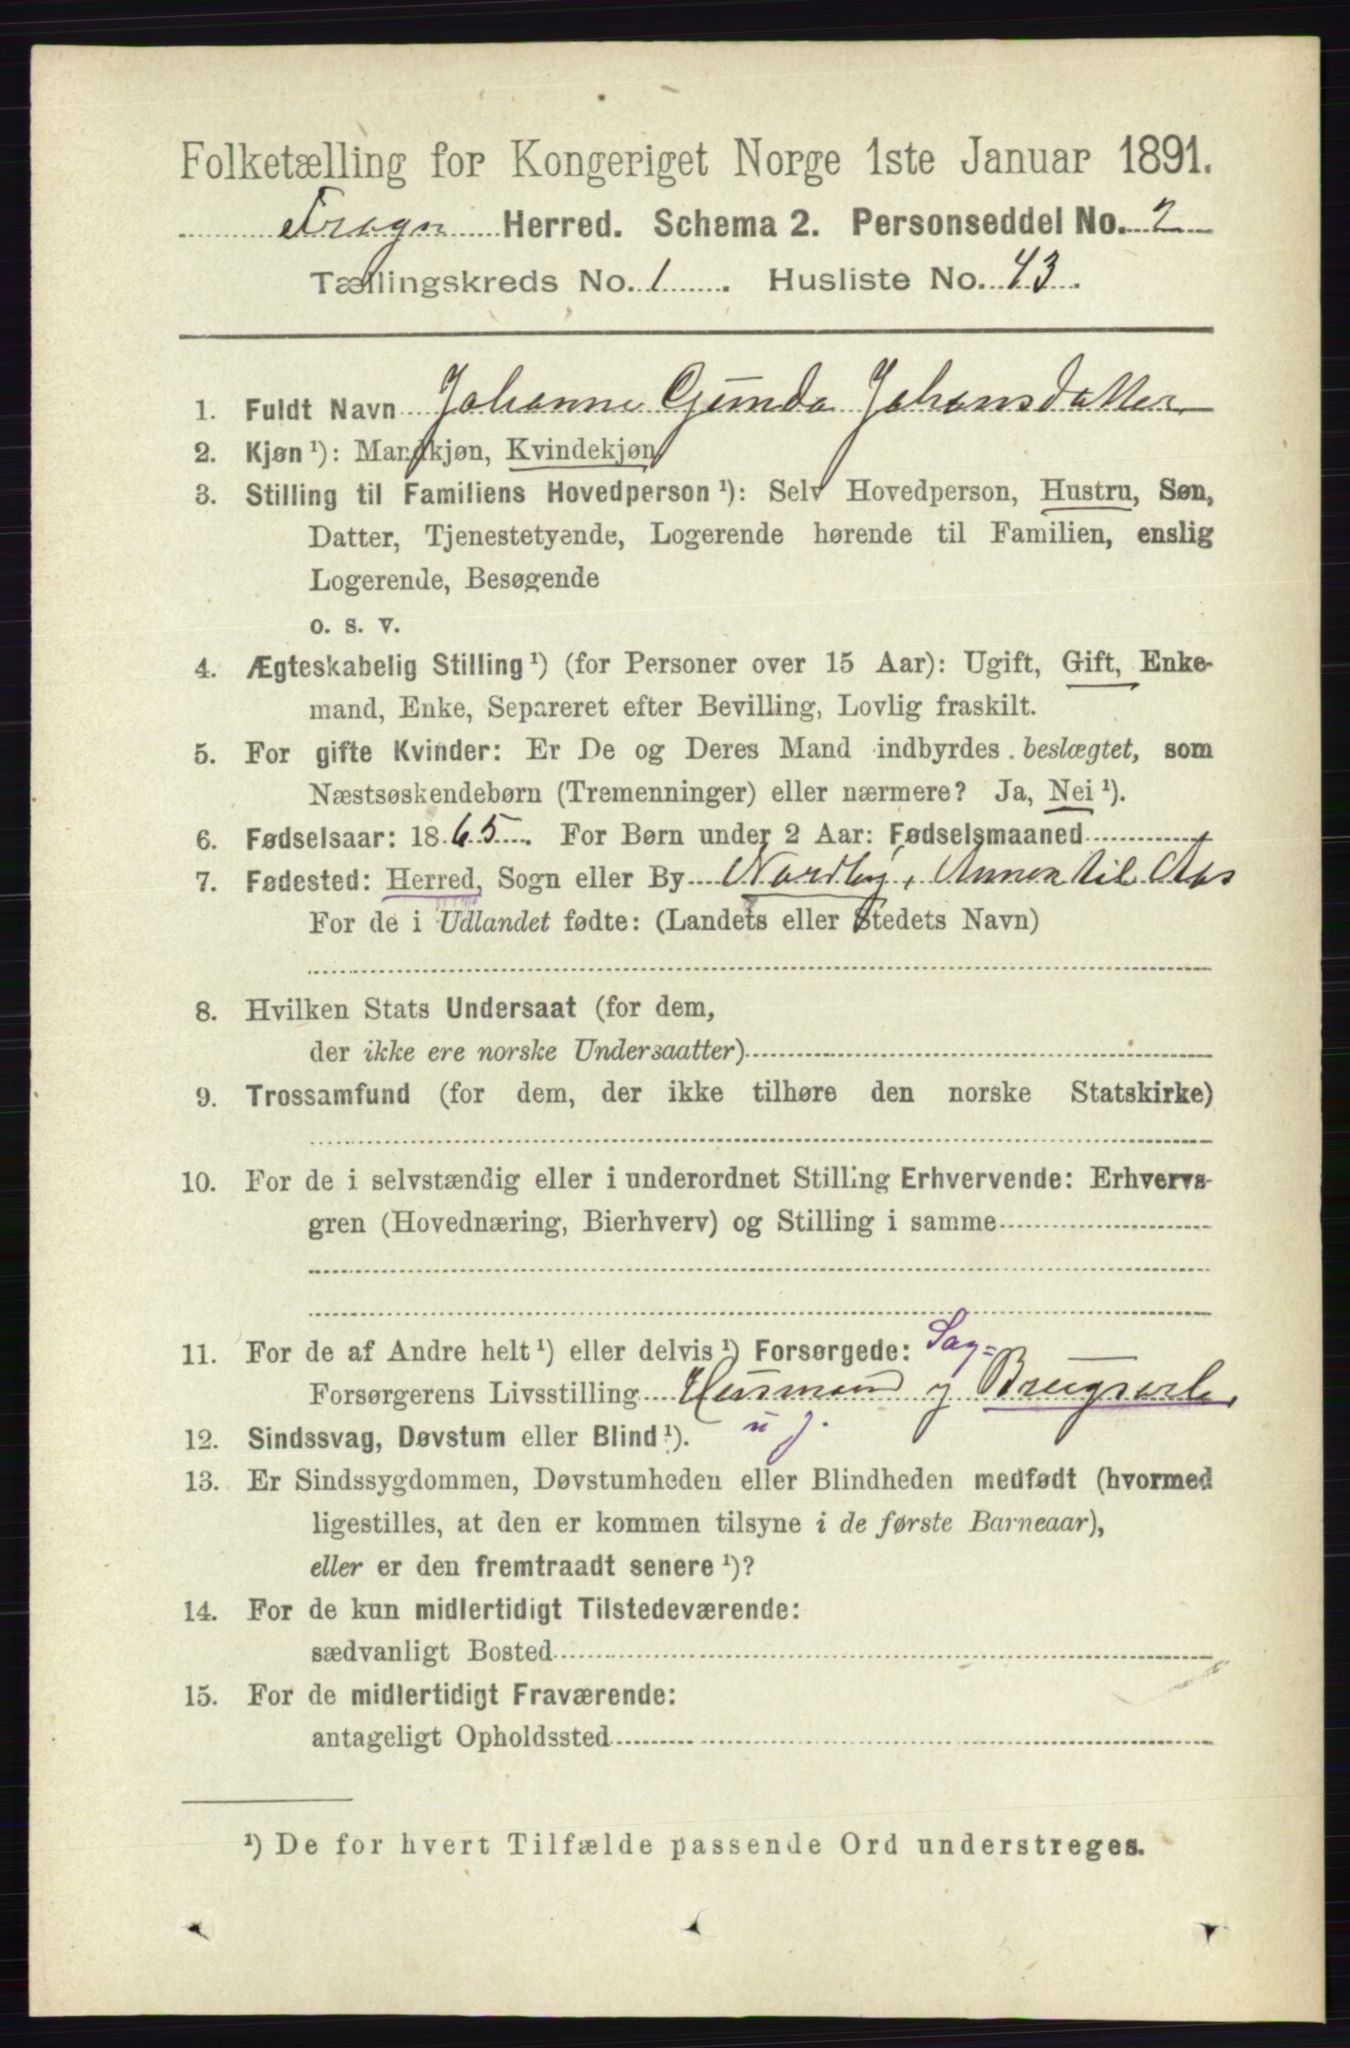 Folketælling for Kongeriget Norge 1ste Januar 1891.
Frogn Herred. Schema 2. Personseddel No. 2
Tællingskreds No. 1. Husliste No. 43.
1. Fuldt Navn Johanne Gunda Johansdatter
2. Kjøn ¹): Mandkjøn, Kvindekjøn
3. Stilling til Familiens Hovedperson ¹): Selv Hovedperson, Hustru, Søn,
Datter, Tjenestetyende, Logerende hørende til Familien, enslig
Logerende, Besøgende
o. s. v.
4. Ægteskabelig Stilling ¹) (for Personer over 15 Aar): Ugift, Gift, Enke-
mand, Enke, Separeret efter Bevilling, Lovlig fraskilt.
5. For gifte Kvinder: Er De og Deres Mand indbyrdes beslægtet, som
Næstsøskendebørn (Tremenninger) eller nærmere? Ja, Nei ¹).
6. Fødselsaar: 1865. For Børn under 2 Aar: Fødselsmaaned
7. Fødested: Herred, Sogn eller By Nordby, Annex til Aas
For de i Udlandet fødte: (Landets eller Stedets Navn)
8. Hvilken Stats Undersaat (for dem,
der ikke ere norske Undersaatter)
9. Trossamfund (for dem, der ikke tilhøre den norske Statskirke)
10. For de i selvstændig eller i underordnet Stilling Erhvervende: Erhvervs-
gren (Hovednæring, Bierhverv) og Stilling i samme
11. For de af Andre helt ¹) eller delvis ¹) Forsørgede: Sag-
Forsørgerens Livsstilling Husmand og Brugsarb.
12. Sindssvag, Døvstum eller Blind ¹). u j.
13. Er Sindssygdommen, Døvstumheden eller Blindheden medfødt (hvormed
ligestilles, at den er kommen tilsyne i de første Barneaar),
eller er den fremtraadt senere ¹)?
14. For de kun midlertidigt Tilstedeværende:
sædvanligt Bosted
15. For de midlertidigt Fraværende:
antageligt Opholdssted
¹) De for hvert Tilfælde passende Ord understreges.